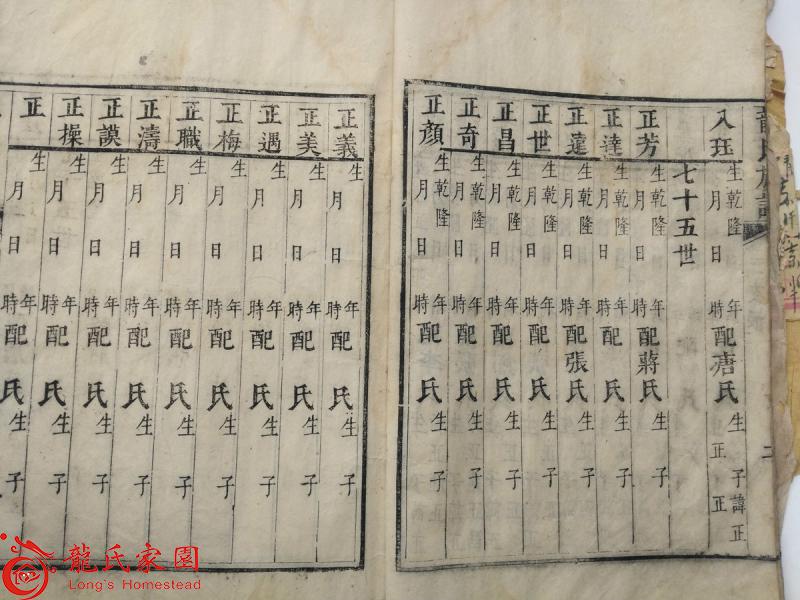 龍氏族譜
二
入珏 生乾隆 年 月 日 時 配唐氏 生 子諱正 正 正
七十五世
正芳 生乾隆 年 月 日 時 配蔣氏 生 子
正達 生乾隆 年 月 日 時 配 氏 生 子
正 生乾隆 年 月 日 時 配張氏 生 子
正世 生乾隆 年 月 日 時 配 氏 生 子
正昌 生乾隆 年 月 日 時 配 氏 生 子
正奇 生乾隆 年 月 日 時 配 氏 生 子
正顏 生乾隆 年 月 日 時 配 氏 生 子
正義 生 年 月 日 時 配 氏 生 子
正美 生 年 月 日 時 配 氏 生 子
正遇 生 年 月 日 時 配 氏 生 子
正梅 生 年 月 日 時 配 氏 生 子
正職 生 年 月 日 時 配 氏 生 子
正濤 生 年 月 日 時 配 氏 生 子
正謨 生 年 月 日 時 配 氏 生 子
正操 生 年 月 日 時 配 氏 生 子
正 生 年 月 日 時 配 氏 生 子
龍氏家園
Long's Homestead